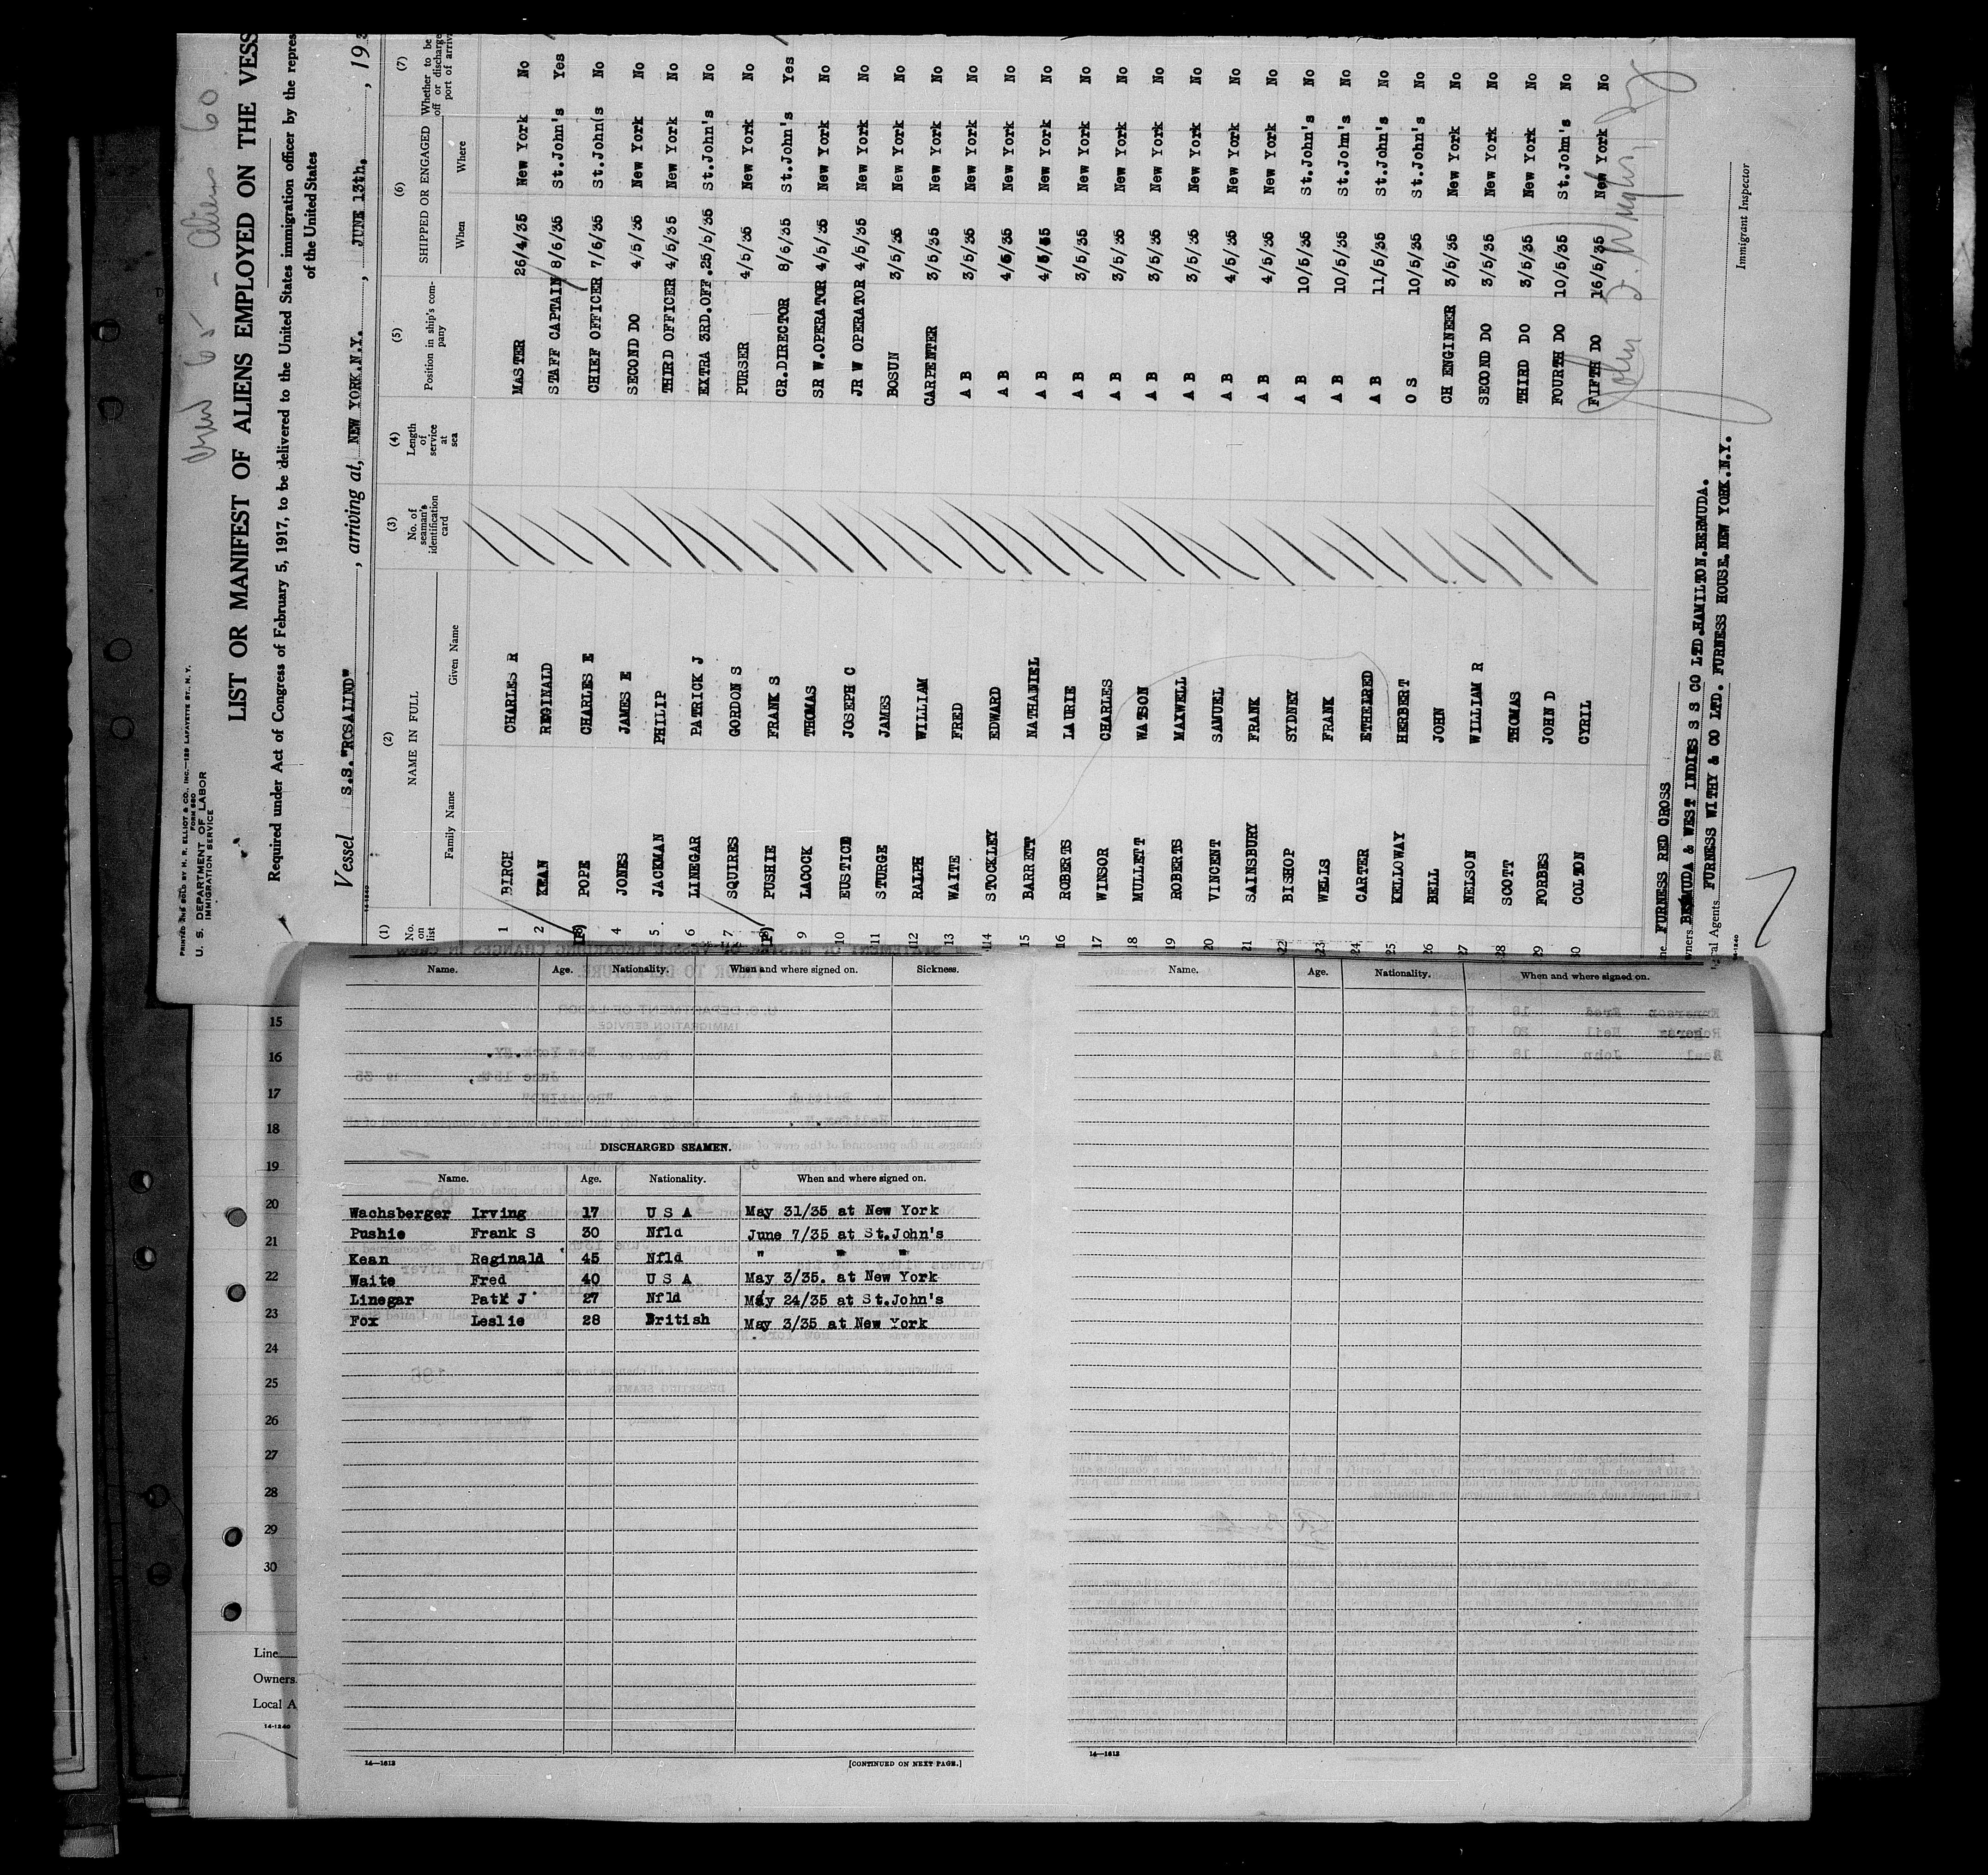 Crew 65 - Aliens 60
PRINTED AND SOLD BY H. R. ELLIOT & CO., INC.—129 LAFAYETTE ST., N. Y.
FORM 680
U. S. DEPARTMENT OF LABOR
IMMIGRATION SERVICE
LIST OR MANIFEST OF ALIENS EMPLOYED ON THE VESS
Required under Act of Congress of February 5, 1917, to be delivered to the United States immigration officer by the repres
of the United States
Vessel S.S."ROSALIND", arriving at, NEW YORK.N.Y., JUNE 13th, 193
14-1240
(1) (2) (3) (4) (5) (6) (7)
No. on list NAME IN FULL No. of seaman's identification card Length of service at sea Position in ship's company SHIPPED OR ENGAGED Whether to be off or discharge port of arriva
Family Name Given Name When Where
1 BIRCH CHARLES R MASTER 26/4/35 New York No
2 KEAN REGINALD STAFF CAPTAIN 8/6/35 St.John's Yes
POPE CHARLES E CHIEF OFFICER 7/6/35 St.John(s No
4 JONES JAMES E SECOND DO 4/5/35 New York No
5 JACKMAN PHILIP THIRD OFFICER 4/5/35 New York No
6 LINEGAR PATRICK J EXTRA 3RD.OFF. 25/5/35 St.John's No
7 SQUIRES GORDON S PURSER 4/5/35 New York No
PUSHIE FRANK S CR.DIRECTOR 8/6/35 St.John's Yes
9 LACOCK THOMAS SR W.OPERATOR 4/5/35 New York No
10 EUSTICE JOSEPH C JR W OPERATOR 4/5/35 New York No
11 STURGE JAMES BOSUN 3/5/35 New York No
12 RALPH WILLIAM CARPENTER 3/5/35 New York No
13 WAITE FRED A B 3/5/35 New York No
14 STOCKLEY EDWARD A B 4/5/35 New York No
15 BARRETT NATHANIEL A B 4/5/35 New York No
16 ROBERTS LAURIE A B 3/5/35 New York No
17 WINSOR CHARLES A B 3/5/35 New York No
18 MULLETT WATSON A B 3/5/35 New York No
19 ROBERTS MAXWELL A B 3/5/35 New York No
20 VINCENT SAMUEL A B 4/5/35 New York No
21 SAINSBURY FRANK A B 4/5/35 New York No
22 BISHOP SYDNEY A B 10/5/35 St.John's No
23 WELLS FRANK A B 10/5/35 St.John's No
24 CARTER ETHELRED A B 11/5/35 St.John's No
25 KELLOWAY HERBERT O S 10/5/35 St.John's No
26 BELL JOHN CH ENGINEER 3/5/35 New York No
27 NELSON WILLIAM R SECOND DO 3/5/35 New York No
28 SCOTT THOMAS THIRD DO 3/5/35 New York No
29 FORBES JOHN D FOURTH DO 10/5/35 St.John's No
30 COLTON CYRIL FIFTH DO 16/5/35 New York No
ne FURNESS RED CROSS
wners BERMUDA & WEST INDIES S S CO LTD.HAMILTON.BERMUDA.
al Agents FURNESS WITHY & CO LTD. FURNESS HOUSE. NEW YORK.N.Y.
Immigrant Inspector
Name. Age. Nationality. When and where signed on. Sickness.
DISCHARGED SEAMEN.
Name. Age. Nationality. When and where signed on.
Wachsberger Irving 17 U S A May 31/35 at New York
Pushie Frank S 30 Nfld June 7/35 at St.John's
Kean Reginald 45 Nfld " " "
Waite Fred 40 U S A May 3/35. at New York
Linegar Patk J 27 Nfld May 24/35 at St.John's
Fox Leslie 28 British May 3/35 at New York
14—1613
[CONTINUED ON NEXT PAGE.]
Name. Age. Nationality. When and where signed on.
14—1613
15
16
17
18
19
20
21
22
23
24
25
26
27
28
29
30
Line
Owners
Local A
14-1240